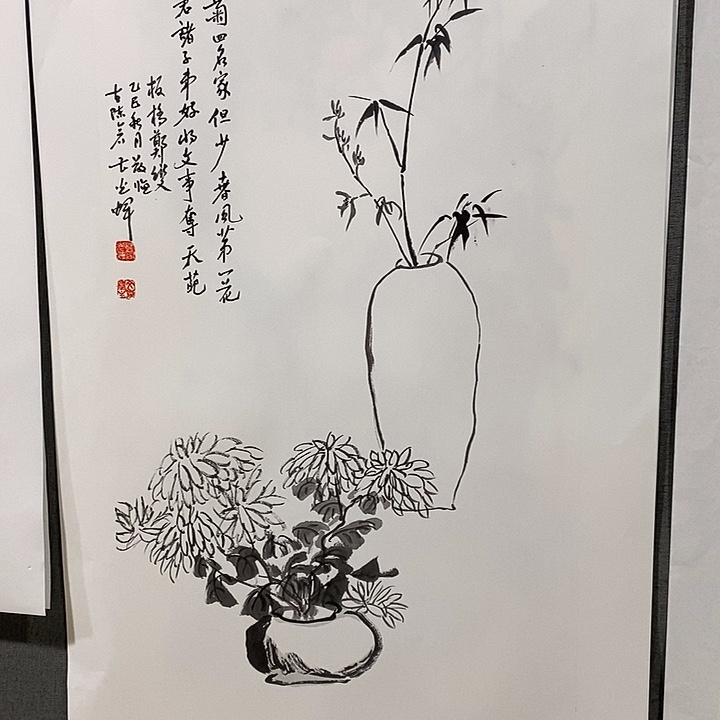 菊四名家但少春風第一花
君諸子弟好將文事奪天葩
板橋鄭燮
乙巳秋月敬臨